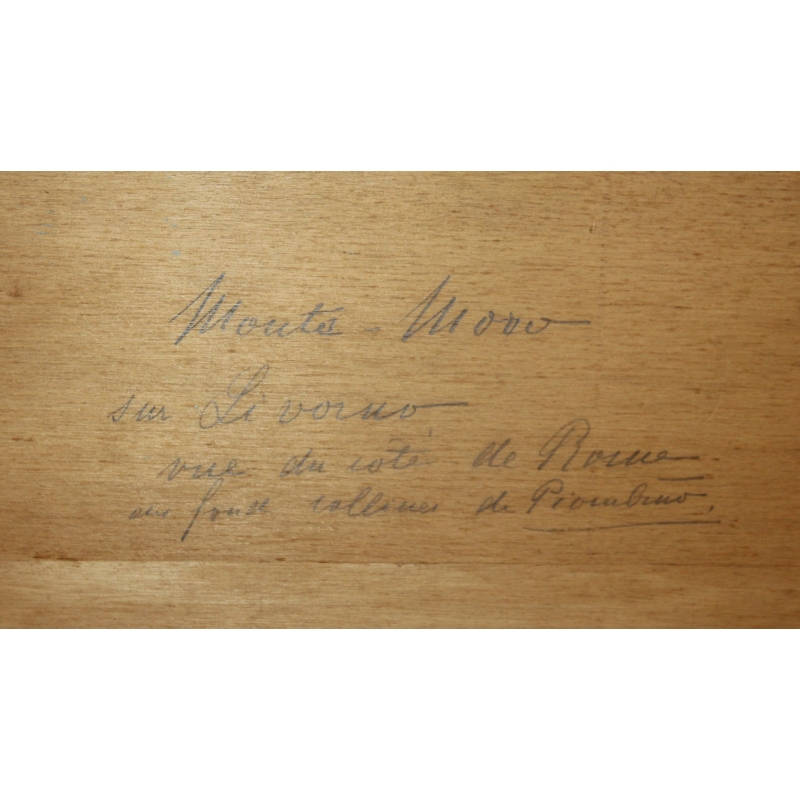 Monté - Moro
sur Livorno
vue du coté de Rome
au fond collines de Piombino.